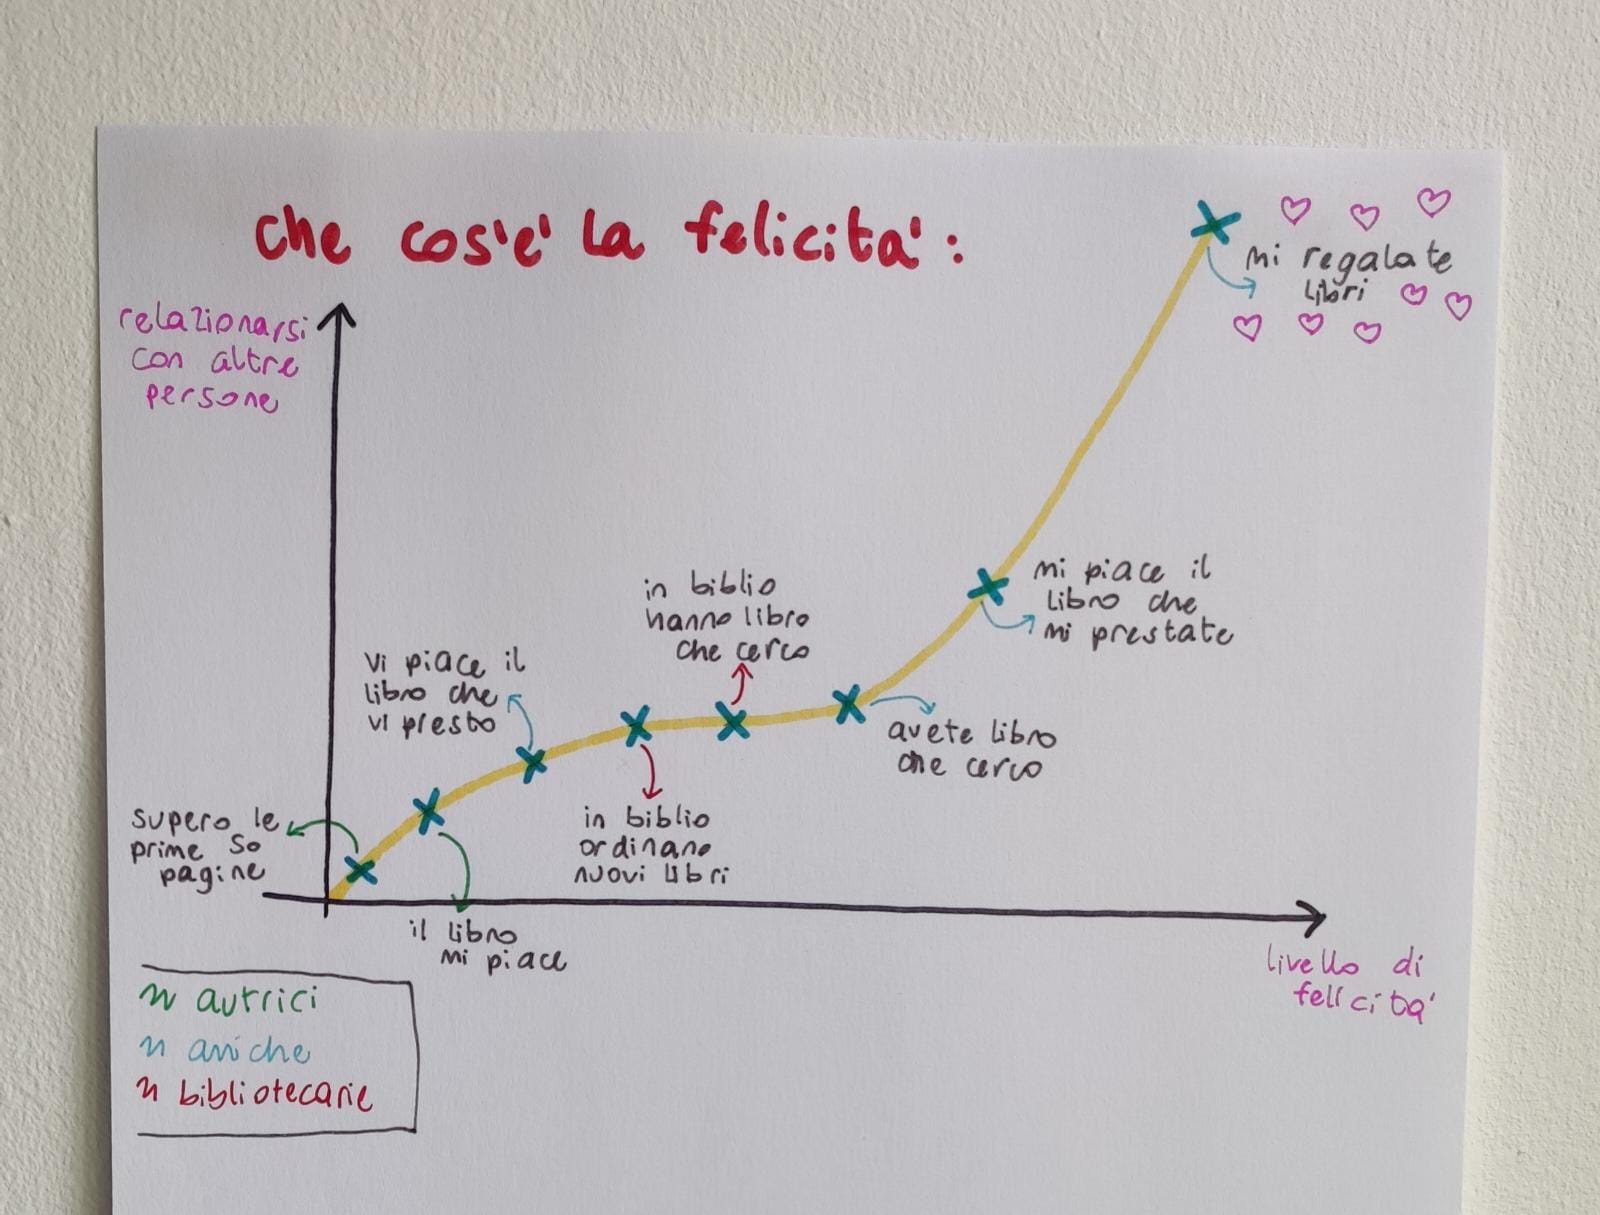 che cos'e' la felicita':
relazionarsi
con altre
persone
mi regalate
libri
mi piace il
libro che
mi prestate
in biblio
hanno libro
che cerco
vi piace il
libro che
vi presto
avete libro
che cerco
supero le
prime 50
pagine
in biblio
ordinano
nuovi libri
il libro
mi piace
livello di
felicita'
autrici
amiche
bibliotecarie